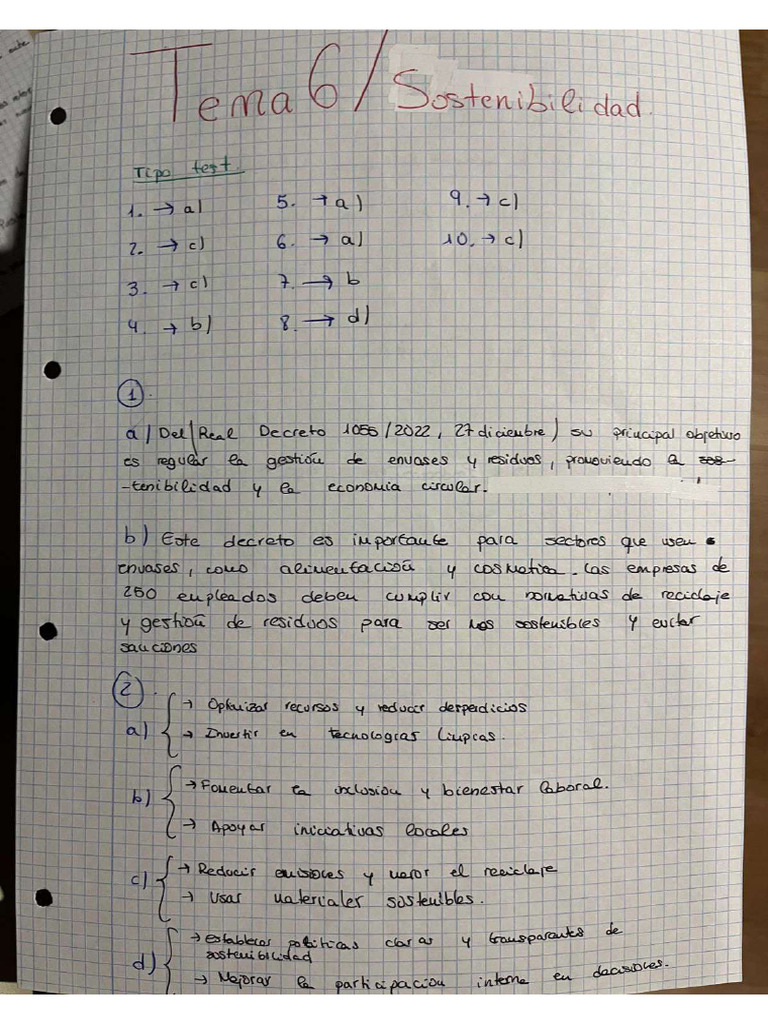 Tema 6 / Sostenibilidad.
Tipo test.
1. → a)
2. → c)
3. → c)
4. → b)
5. → a)
6. → a)
7. → b
8. → d)
9. → c)
10. → c)
1.
a) Del (Real Decreto 1055/2022, 27 diciembre) su principal objetivo
es regular la gestión de envases y residuos, promoviendo la sos-
-tenibilidad y la economia circular.
b) Este decreto es importante para sectores que usen
envases, como alimentación y cosmetica. Las empresas de
250 empleados deben cumplir con normativas de reciclaje
y gestión de residuos para ser mas sostenibles y evitar
sanciones
2.
a) → Optimizar recursos y reducir desperdicios
→ Invertir en tecnologias limpias.
b) → Fomentar la inclusion y bienestar laboral.
→ Apoyar iniciativas locales
c) → Reducir emisiones y el reciclaje
→ Usar materiales sostenibles.
d) → Establecer politicas claras y transparentes de
sostenibilidad
→ Mejorar la participacion interna en decisiones.